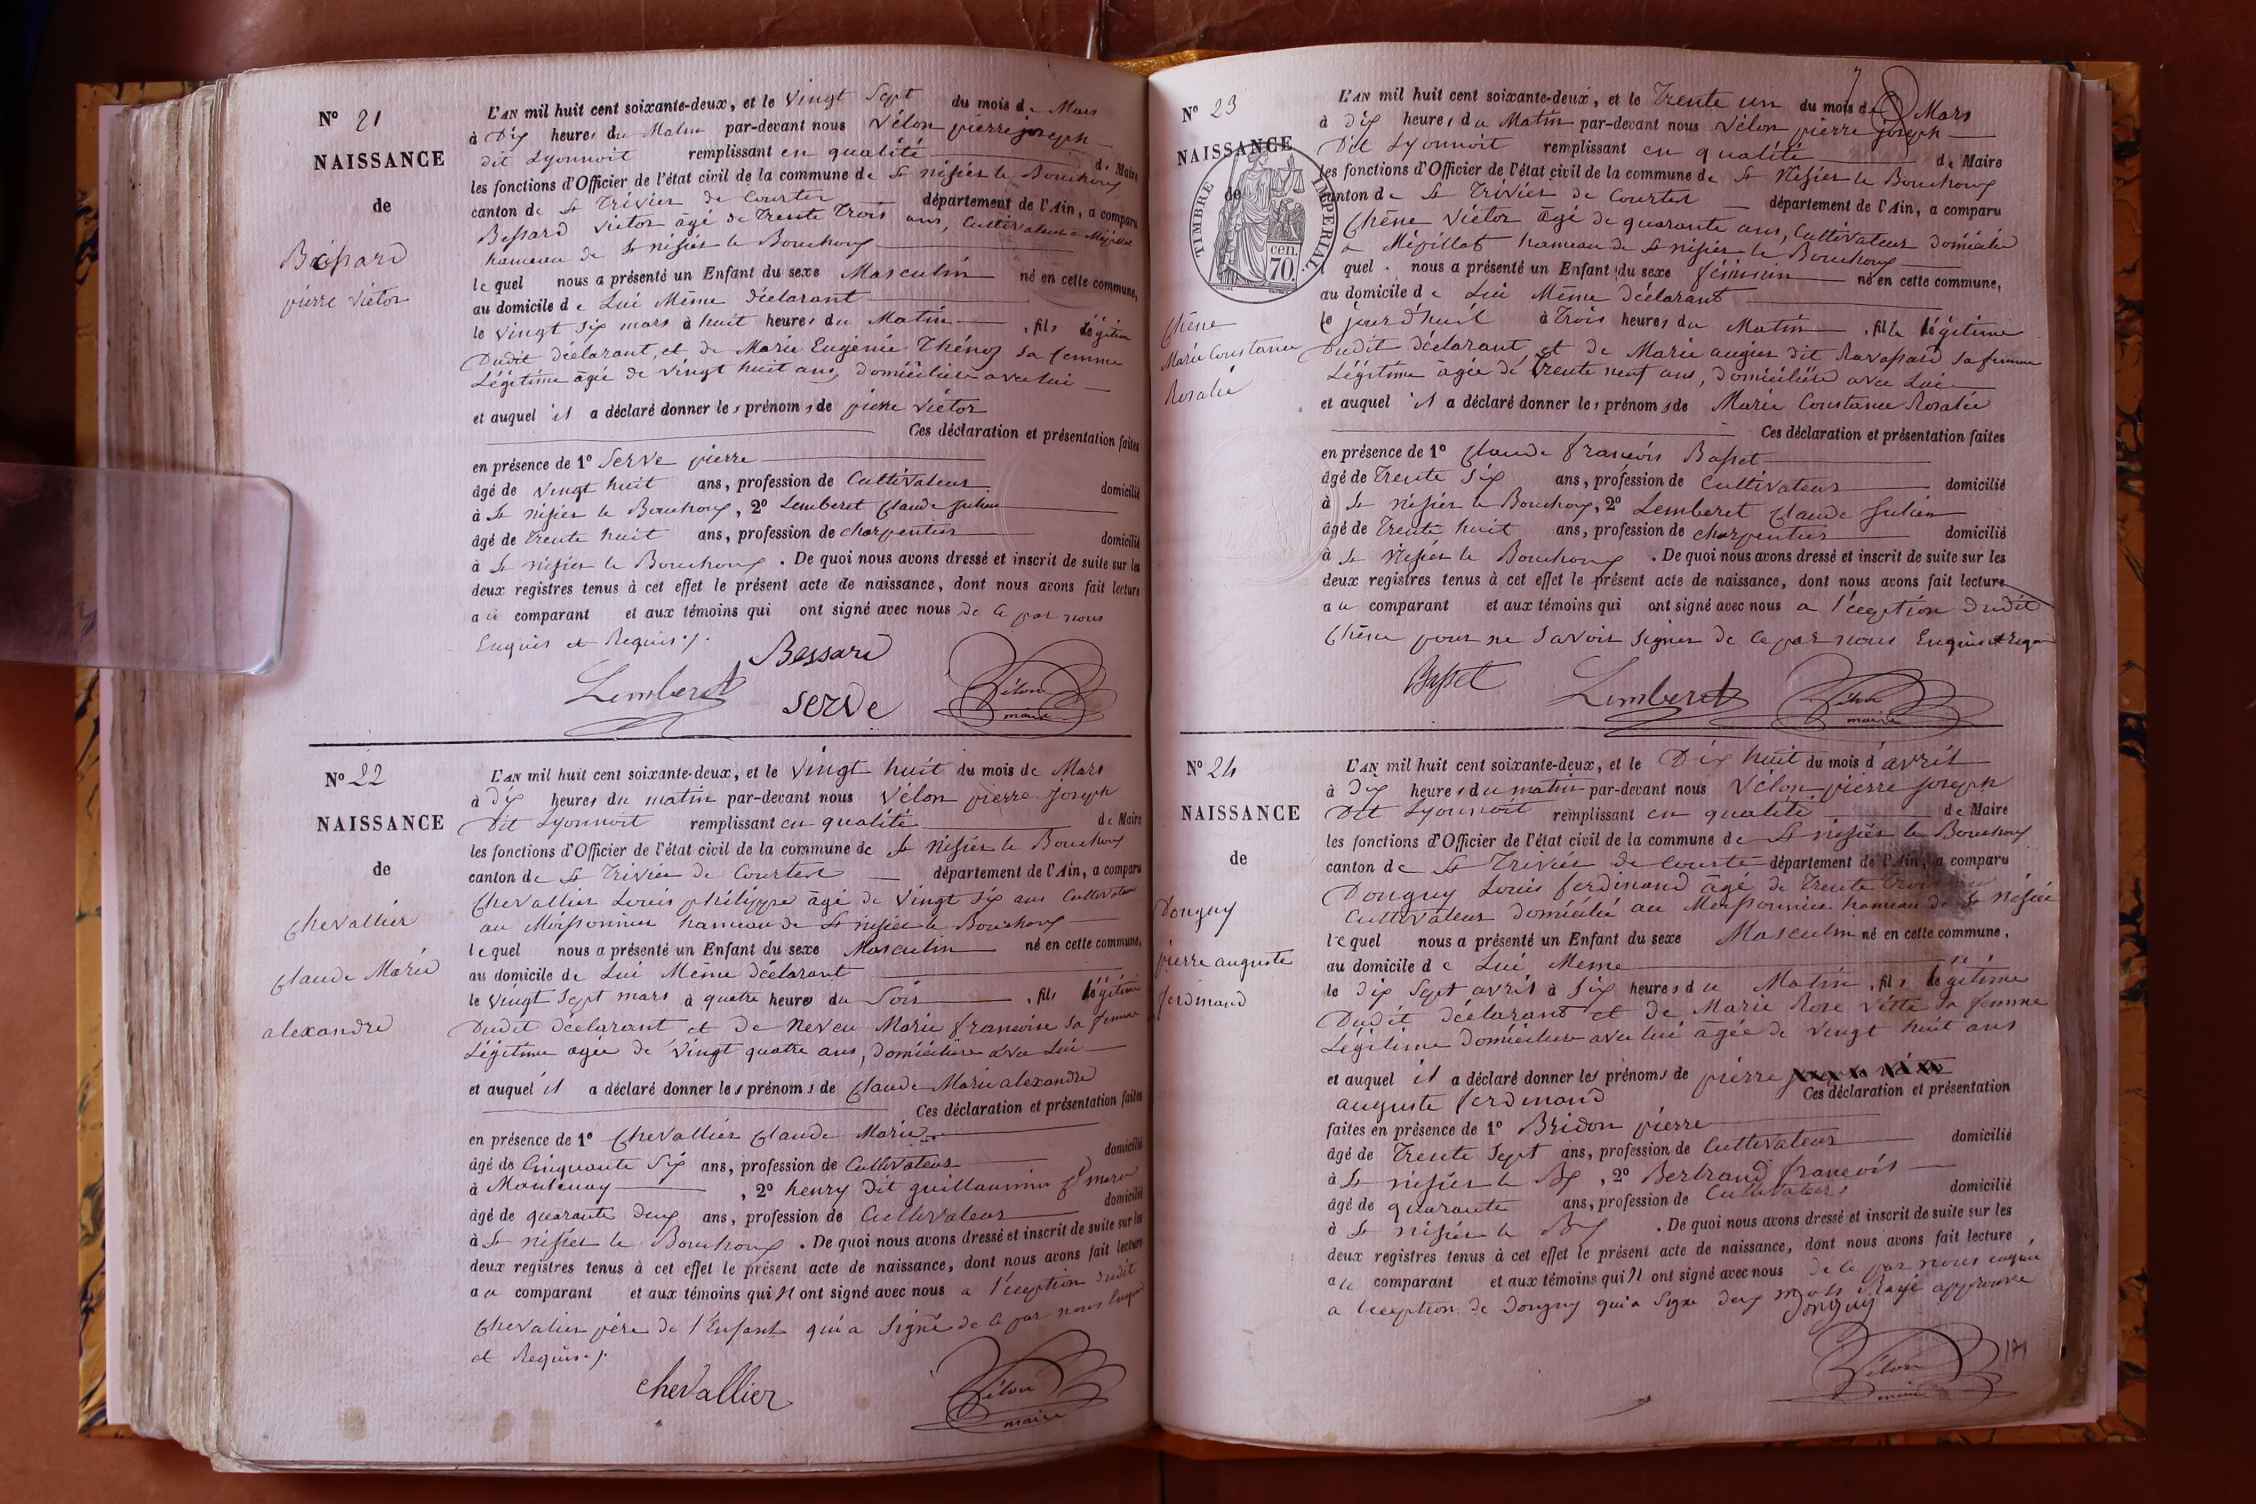 N° 21
NAISSANCE
de
Bessard
pierre Victor
L'AN mil huit cent soixante-deux, et le Vingt Sept du mois de Mars
à Dix heures du Matin par-devant nous Vélon pierre joseph
dit Lyonnoit remplissant en qualité de Maire
les fonctions d'Officier de l'état civil de la commune de St nisier le Bouchoux
canton de St Trivier de Courtes département de l'Ain, a comparu
Bessard Victor âgé de Trente Trois ans, Cultivateur a Mépillat
hameau de St nisier le Bouchoux
lequel nous a présenté un Enfant du sexe Masculin né en cette commune,
au domicile de Lui Même déclarant
le Vingt Six mars à huit heures du Matin, fils légitime
Dudit déclarant, et de Marie Eugénie Thénoz Sa femme
Légitime âgée de Vingt huit ans, domiciliée avec lui
et auquel il a déclaré donner les prénoms de pierre Victor
Ces déclaration et présentation faites
en présence de 1° Serve pierre
âgé de Vingt huit ans, profession de Cultivateur domicilié
à St nisier le Bouchoux, 2° Lemberet Claude Julien
âgé de Trente huit ans, profession de charpentier domicilié
à St nisier le Bouchoux. De quoi nous avons dressé et inscrit de suite sur les
deux registres tenus à cet effet le présent acte de naissance, dont nous avons fait lecture
au comparant et aux témoins qui ont signé avec nous de ce par nous
Enquis et Requis ./.
Bessard
Lemberet Serve Vélon
maire
N° 22
NAISSANCE
de
Chevallier
Claude Marie
alexandre
L'AN mil huit cent soixante-deux, et le Vingt huit du mois de Mars
à dix heures du matin par-devant nous Vélon pierre joseph
Dit Lyonnoit remplissant en qualité de Maire
les fonctions d'Officier de l'état civil de la commune de St nisier le Bouchoux
canton de St Trivier de Courtes département de l'Ain, a comparu
Chevallier Louis philippe âgé de Vingt Six ans Cultivateur
au Moissonnier hameau de St nisier le Bouchoux
lequel nous a présenté un Enfant du sexe Masculin né en cette commune,
au domicile de Lui Même déclarant
le Vingt Sept mars à quatre heures du Soir, fils légitime
Dudit déclarant et de Neveu Marie francoise Sa femme
Légitime agée de Vingt quatre ans, domiciliée avec Lui
et auquel il a déclaré donner les prénoms de Claude Marie alexandre
Ces déclaration et présentation faites
en présence de 1° Chevallier Claude Marie
âgé de Cinquante Six ans, profession de Cultivateur domicilié
à Mantenay, 2° henry Dit guillaumin
âgé de quarante deux ans, profession de Cultivateur domicilié
à St nisier le Bouchoux. De quoi nous avons dressé et inscrit de suite sur les
deux registres tenus à cet effet le présent acte de naissance, dont nous avons fait lecture
au comparant et aux témoins qui N ont signé avec nous a l'éception dudit
Chevalier père de l'Enfant qui a Signé de ce par nous Enquis
et Requis ./.
chevallier Vélon
maire
N° 23
NAISSANCE
de
TIMBRE IMPERIAL
70 cen.
Chêne
Marie Constance
Rosalie
L'AN mil huit cent soixante-deux, et le Trente un du mois de Mars
à dix heures du Matin par-devant nous Vélon pierre joseph
Dit Lyonnoit remplissant en qualité de Maire
les fonctions d'Officier de l'état civil de la commune de St Nisier le Bouchoux
canton de St Trivier de Courtes département de l'Ain, a comparu
Chêne Victor âgé de quarante ans, Cultivateur domicilié
a Mépillat hameau de St nisier le Bouchoux
quel nous a présenté un Enfant du sexe féminin né en cette commune,
au domicile de Lui Même déclarant
le jourd'huit à Trois heures du Matin, fille légitime
Dudit déclarant et de Marie augier dit Ravassard Sa femme
Légitime agée de Trente neuf ans, domiciliée avec Lui
et auquel il a déclaré donner les prénoms de Marie Constance Rosalie
Ces déclaration et présentation faites
en présence de 1° Claude francois Basset
âgé de Trente Six ans, profession de Cultivateur domicilié
à St nisier le Bouchoux, 2° Lemberet Claude Julien
âgé de Trente huit ans, profession de charpentier domicilié
à St nisier le Bouchoux. De quoi nous avons dressé et inscrit de suite sur les
deux registres tenus à cet effet le présent acte de naissance, dont nous avons fait lecture
au comparant et aux témoins qui ont signé avec nous a l'éception dudit
Chêne pour ne Savoir Signer de ce par nous Enquis et Requis
Basset Lemberet Vélon
maire
N° 24
NAISSANCE
de
Donguy
pierre auguste
ferdinand
L'AN mil huit cent soixante-deux, et le Dix huit du mois d avril
à Dix heures du matin par-devant nous Vélon pierre joseph
Dit Lyonnoit remplissant en qualité de Maire
les fonctions d'Officier de l'état civil de la commune de St nisier le Bouchoux
canton de St Trivier de Courte département de l'Ain, a comparu
Donguy Louis ferdinand âgé de Trente Trois
Cultivateur domicilié au Moissonnier hameau de St nisier
lequel nous a présenté un Enfant du sexe Masculin né en cette commune,
au domicile de Lui Meme
le dix Sept avril à Six heures du Matin, fils légitime
Dudit déclarant et de Marie Rose Vitte Sa femme
Légitime domiciliée avec lui âgée de Vingt huit ans
et auquel il a déclaré donner les prénoms de pierre
auguste ferdinand Ces déclaration et présentation
faites en présence de 1° Bridon pierre
âgé de Trente Sept ans, profession de Cultivateur domicilié
à St nisier le Bx, 2° Bertrand francois
âgé de quarante ans, profession de Cultivateur domicilié
à St nisier le Bx. De quoi nous avons dressé et inscrit de suite sur les
deux registres tenus à cet effet le présent acte de naissance, dont nous avons fait lecture
au comparant et aux témoins qui N ont signé avec nous de ce par nous enquis
a l'eception de Donguy qui a Signe deux mots Rayé approuvé
Donguy
Vélon
maire